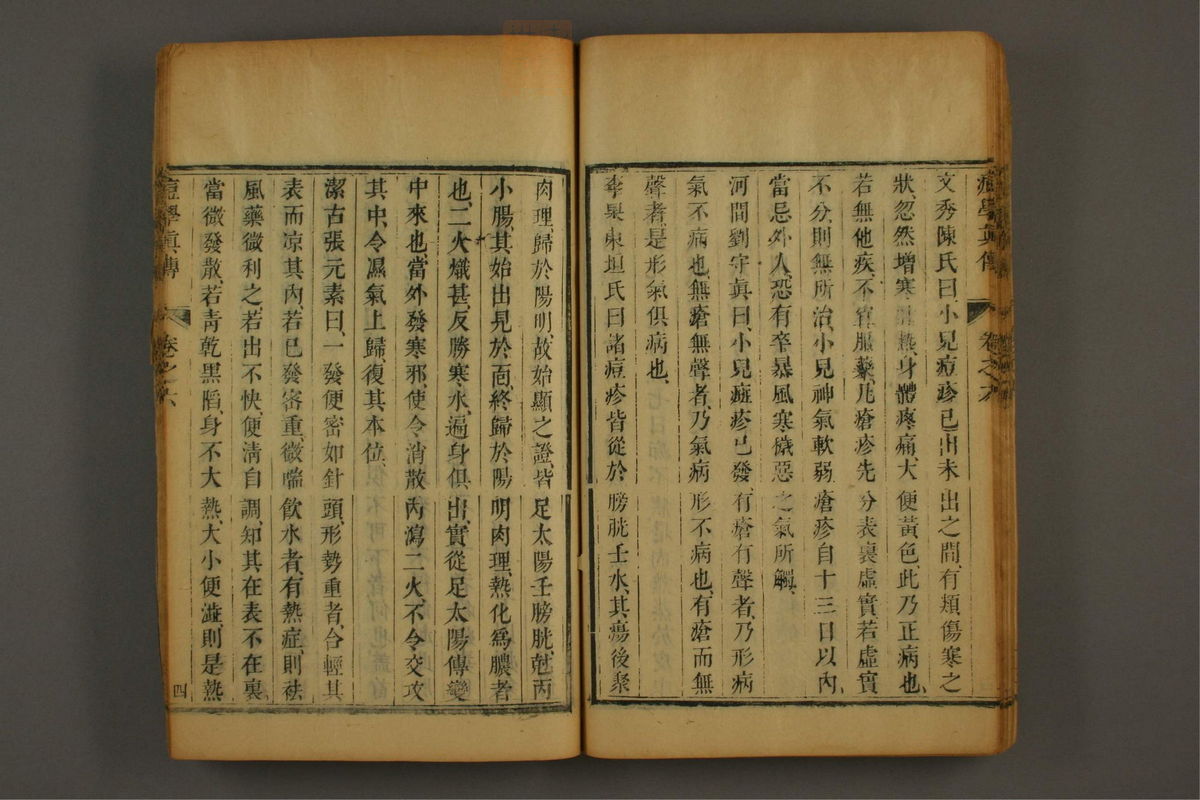 痘學眞傳 卷之六
文秀陳氏曰、小兒痘疹已出未出之間、有類傷寒之
狀、忽然增寒壯熱、身體疼痛、大便黃色、此乃正病也、
若無他疾、不宜服藥、凡瘡疹先分表裏虛實、若虛實
不分、則無所治、小兒神氣軟弱、瘡疹自十三日以內、
當忌外人、恐有卒暴風寒穢惡之氣所觸、
河間劉守眞曰、小兒瘡疹已發、有瘡有聲者、乃形病
氣不病也、無瘡無聲者、乃氣病形不病也、有瘡而無
聲者、是形氣俱病也、
李杲東垣氏曰、諸痘疹皆從於膀胱壬水、其瘍後聚
肉理、歸於陽明、故始顯之證、皆足太陽壬膀胱、尅丙
小腸、其始出見於面、終歸於陽明肉理、熱化爲膿者
也、二火熾甚、反勝寒水、遍身俱出、實從足太陽傳變
中來也、當外發寒邪、使令消散、內瀉二火、不令交攻
其中、令濕氣上歸、復其本位、
潔古張元素曰、一發便密如針頭、形勢重者、合輕其
表而凉其內、若已發密重、微喘飮水者、有熱症、則祛
風藥微利之、若出不快、便淸自調、知其在表不在裏、
當微發散、若靑乾黑陷、身不大熱、大小便澁、則是熱
痘學眞傳 卷之六 四